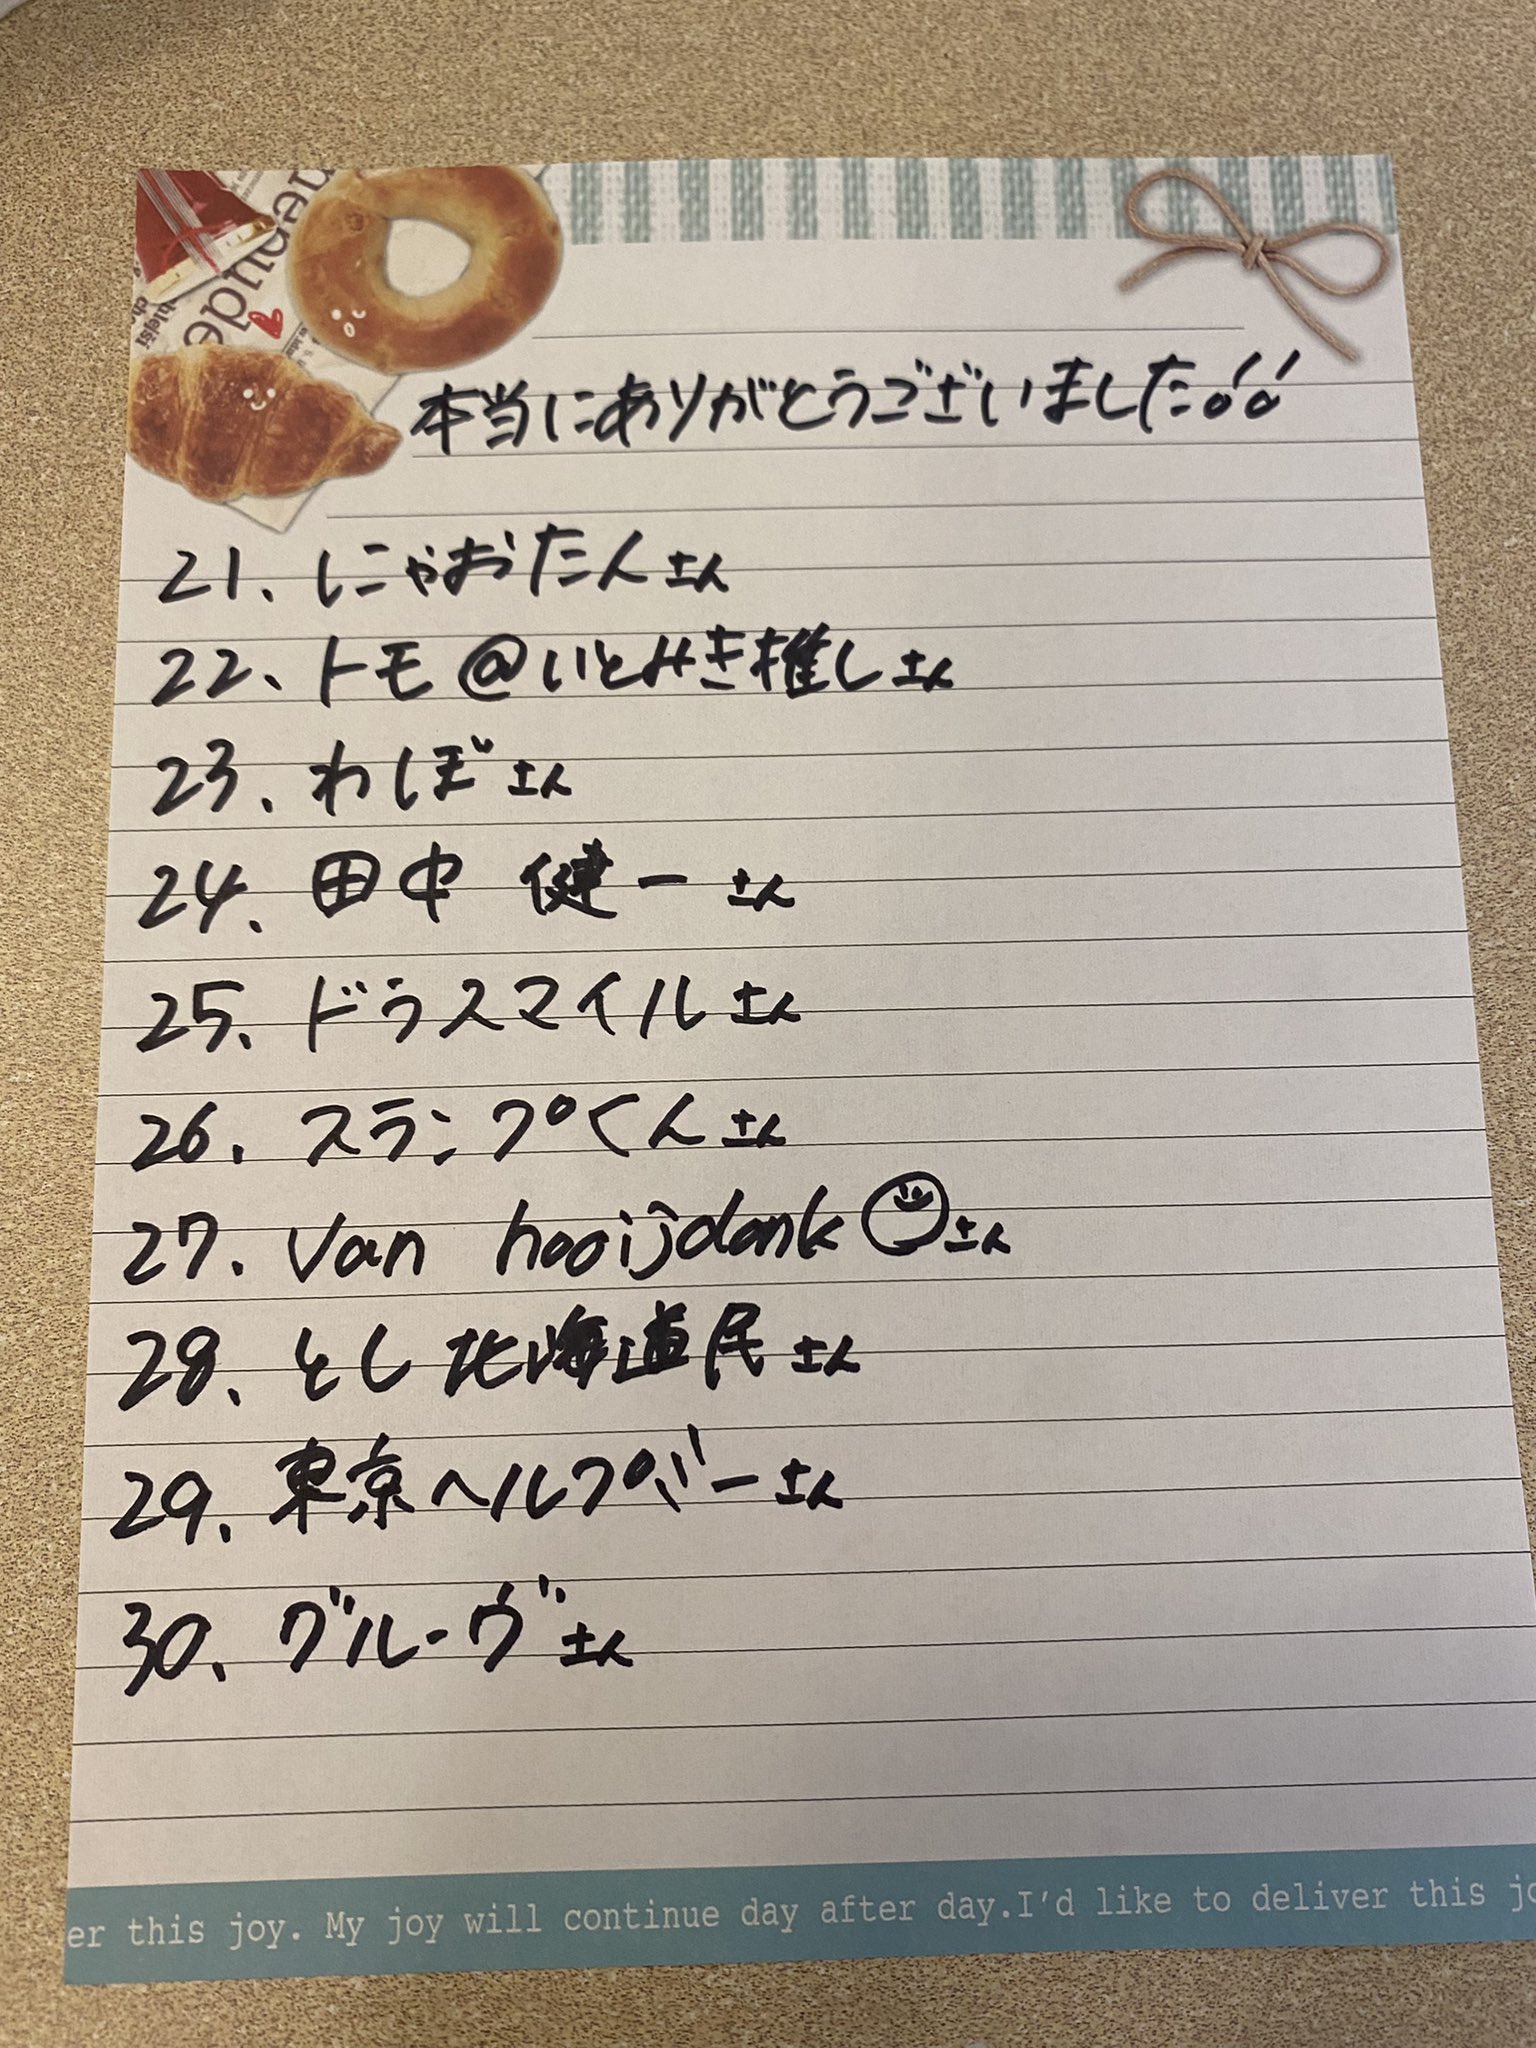 本当にありがとうございました!!
21、にゃおたんさん
22、トモ@いとみき推しさん
23、わしぼさん
24、田中 健一さん
25、ドラスマイルさん
26、スランプくんさん
27、Van hooijdonk さん
28、とし北海道民さん
29、東京ヘルプバーさん
30、グルーヴさん
er this joy. My joy will continue day after day.I'd like to deliver this jo